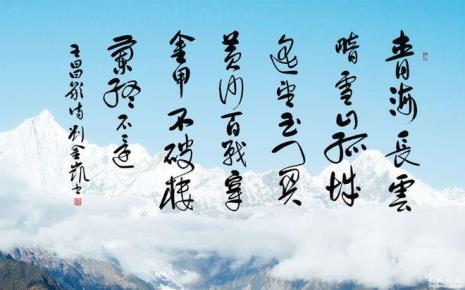 青海長雲
暗雪山孤城
遥望玉门关
黄沙百戰穿
金甲不破樓
蘭終不還
王昌龄诗刘金凯书